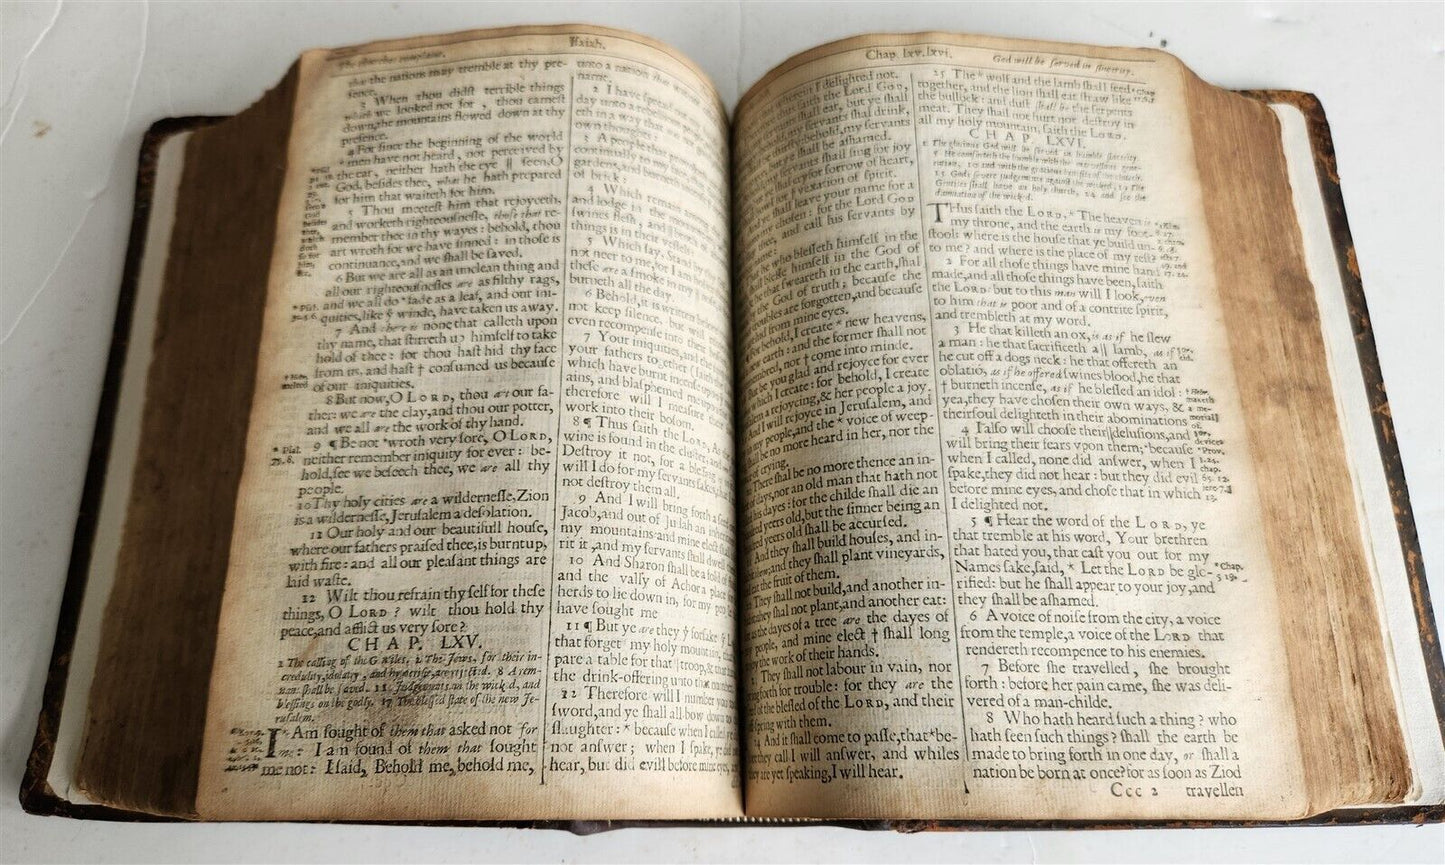 The churches complaint.
Isaiah.
that the nations may tremble at thy pre-
sence.
3 When thou didst terrible things
which we looked not for, thou camest
down, the mountains flowed down at thy
presence.
4 For since the beginning of the world
* men have not heard, nor perceived by
the ear, neither hath the eye || seen, O
God, besides thee, what he hath prepared
for him that waiteth for him.
5 Thou meetest him that rejoyceth,
and worketh righteousnesse, those that re-
member thee in thy wayes: behold, thou
art wroth for we have sinned: in those is
continuance, and we shall be saved.
6 But we are all as an unclean thing and
all our righteousnesses are as filthy rags,
and we all do * fade as a leaf, and our ini-
quities, like ye winde, have taken us away.
7 And there is none that calleth upon
thy name, that stirreth up himself to take
hold of thee: for thou hast hid thy face
from us, and hast † consumed us because
of our iniquities.
8 But now, O LORD, thou art our fa-
ther: we are the clay, and thou our potter,
and we all are the work of thy hand.
9 ¶ Be not * wroth very sore, O LORD,
neither remember iniquity for ever: be-
hold, see we beseech thee, we are all thy
people.
10 Thy holy cities are a wildernesse, Zion
is a wildernesse, Jerusalem a desolation.
11 Our holy and our beautifull house,
where our fathers praised thee, is burnt up,
with fire: and all our pleasant things are
laid waste.
12 Wilt thou refrain thy self for these
things, O LORD? wilt thou hold thy
peace, and afflict us very sore?
CHAP. LXV.
1 The calling of the Gentiles, 2 The Jews, for their in-
credulity, idolatry, and hypocrisie, are rejected. 8 A rem-
nant shall be saved. 11 Judgements on the wicked, and
blessings on the godly. 17 The blessed state of the new Je-
rusalem.
I * Am sought of them that asked not for
me: I am found of them that sought
me not: I said, Behold me, behold me,
* Psal.
90. 5, 6.
† Heb.
melted
* Psal.
79. 8.
unto a nation that
name.
2 I have spread
day unto a re
eth in a way that
own thoughts:
3 A people that pro
continually to my
gardens, and burneth
of brick:
4 Which remain among
and lodge in the
swines flesh, and
things is in their vessels
5 Which say, Stand by
not neer to me, for I am
these are a smoke in my
burneth all the day.
6 Behold, it is written before
not keep silence, but will
even recompense into their
7 Your iniquities, and the
your fathers together (saith
which have burnt incense up
ains, and blasphemed me up
therefore will I measure the
work into their bosom.
8 ¶ Thus saith the LORD, As
wine is found in the cluster, and
Destroy it not, for a blessing
will I do for my servants sakes, that
not destroy them all.
9 And I will bring forth a seed
Jacob, and out of Judah an inheri
my mountains: and mine elect shall
rit it, and my servants shall dwell
10 And Sharon shall be a fold of
and the vally of Achor a place
herds to lie down in, for my people
have sought me
11 ¶ But ye are they ye forsake ye L
that forget my holy mountain,
pare a table for that || troop, & that
the drink-offering unto that number
12 Therefore will I number you
sword, and ye shall all bow down to
slaughter: * because when I called ye
not answer; when I spake, ye did
hear, but did evill before mine eyes,
Chap. lxv. lxvi.
God will be served in sincerity.
wherein I delighted not.
saith the Lord GOD,
eat, but ye shall
servants shall drink,
behold, my servants
shall be ashamed.
servants shall sing for joy
cry for sorrow of heart,
of vexation of spirit.
shall leave your name for a
my chosen: for the Lord GOD
thee, and call his servants by
he who blesseth himself in the
blesse himself in the God of
he that sweareth in the earth, shal
the God of truth; because the
troubles are forgotten, and because
from mine eyes.
For behold, I create * new heavens,
new earth: and the former shall not
remembred, not † come into minde.
But be you glad and rejoyce for ever
which I create: for behold, I create
a rejoycing, & her people a joy.
And I will rejoyce in Jerusalem, and
my people, and the * voice of weep-
shall be no more heard in her, nor the
of crying.
There shall be no more thence an in-
of dayes, nor an old man that hath not
his dayes: for the childe shall die an
hundred yeers old, but the sinner being an
hundred yeers old shall be accursed.
And they shall build houses, and in-
them; and they shall plant vineyards,
eat the fruit of them.
They shall not build, and another in-
they shall not plant, and another eat:
as the dayes of a tree are the dayes of
my people, and mine elect † shall long
enjoy the work of their hands.
They shall not labour in vain, nor
bring forth for trouble: for they are the
seed of the blessed of the LORD, and their
offspring with them.
24 And it shall come to passe, that * be-
fore they call I will answer, and whiles
they are yet speaking, I will hear.
25 The * wolf and the lamb shall feed
together, and the lion shall eat straw like
the bullock: and dust shall be the serpents
meat. They shall not hurt nor destroy in
all my holy mountain, saith the LORD.
CHAP. LXVI.
1 The glorious God will be served in humble sincerity.
5 He comforteth the humble with the marvellous gene-
ration, 10 and with the gracious benefits of the church.
15 Gods severe judgements against the wicked. 19 The
Gentiles shall have an holy church, 24 and see the
damnation of the wicked.
THus saith the LORD, * The heaven is
my throne, and the earth is my foot-
stool: where is the house that ye build un-
to me? and where is the place of my rest?
2 For all those things have mine hand
made, and all those things have been, saith
the LORD: but to this man will I look, even
to him that is poor and of a contrite spirit,
and trembleth at my word.
3 He that killeth an ox, is as if he slew
a man: he that sacrificeth a || lamb, as if
he cut off a dogs neck: he that offereth an
oblation, as if he offered swines blood, he that
† burneth incense, as if he blessed an idol:
yea, they have chosen their own wayes, &
their soul delighteth in their abominations
4 I also will choose their || delusions, and
will bring their fears upon them; * because
when I called, none did answer, when I
spake, they did not hear: but they did evil
before mine eyes, and chose that in which
I delighted not.
5 ¶ Hear the word of the LORD, ye
that tremble at his word, Your brethren
that hated you, that cast you out for my
Names sake, said, * Let the LORD be glo-
rified: but he shall appear to your joy, and
they shall be ashamed.
6 A voice of noise from the city, a voice
from the temple, a voice of the LORD that
rendereth recompence to his enemies.
7 Before she travelled, she brought
forth: before her pain came, she was deli-
vered of a man-childe.
8 Who hath heard such a thing? who
hath seen such things? shall the earth be
made to bring forth in one day, or shall a
nation be born at once? for as soon as Ziod
Ccc 2 travelled
* Chap.
|| Or,
kid.
† Heb.
maketh
a me-
morial
of.
|| Or,
devices
* Prov.
1. 24.
chap.
65. 12.
jere 7.
13.
* Chap.
5 19.